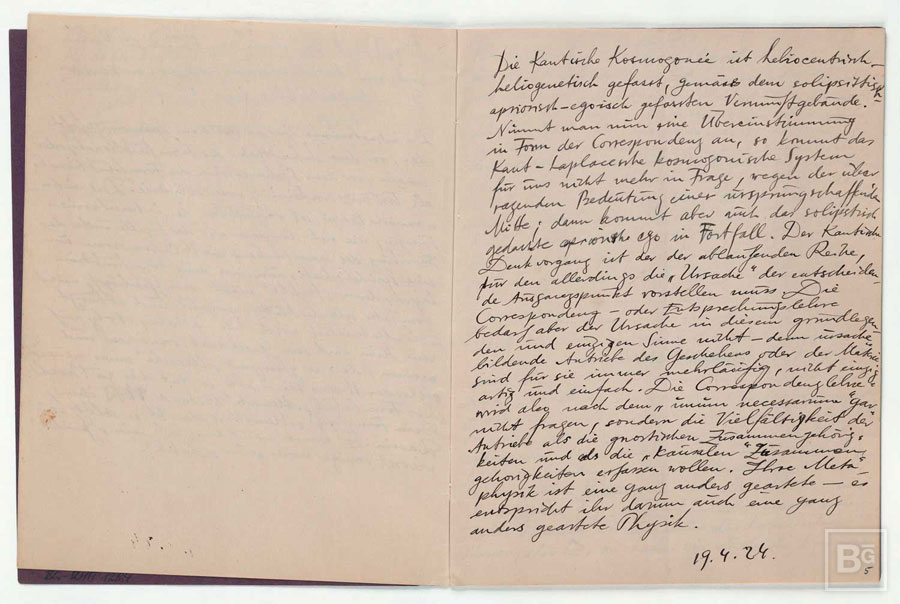 Die Kantische Kosmogonie ist heliocentrisch-
heliogenetisch gefasst, gemäss dem solipsistisch-
apriorisch-egoisch gefassten Vernunftgebäude.
Nimmt man nun eine Übereinstimmung
in Form der Correspondenz an, so kommt das
Kant-Laplacesche kosmogonische System
für uns nicht mehr in Frage, wegen der über
ragenden Bedeutung einer ursprungschaffenden
Mitte; dann kommt aber auch das solipsistisch
gedachte apriorische ego in Fortfall. Der Kantische
Denkvorgang ist der der ablaufenden Reihe,
für den allerdings die „Ursache" der entscheiden-
de Ausgangspunkt vorstellen muss. Die
Correspondenz- oder Entsprechungslehre
bedarf aber der Ursache in diesem grundlegen-
den und einzigen Sinne nicht - denn ursache-
bildende Antriebe des Geschehens oder der Materie
sind für sie immer mehrläufig, nicht einzig-
artig und einfach. Die Correspondenzlehre
wird also nach dem „unum necessarium" gar
nicht fragen, sondern die Vielfältigkeit der
Antriebe als die gnostischen Zusammengehörig-
keiten und als die „kausalen" Zusammen
gehörigkeiten erfassen wollen. Ihre Meta-
physik ist eine ganz anders geartete - es
entspricht ihr darum auch eine ganz
anders geartete Physik.
19.4.24.
5
BG